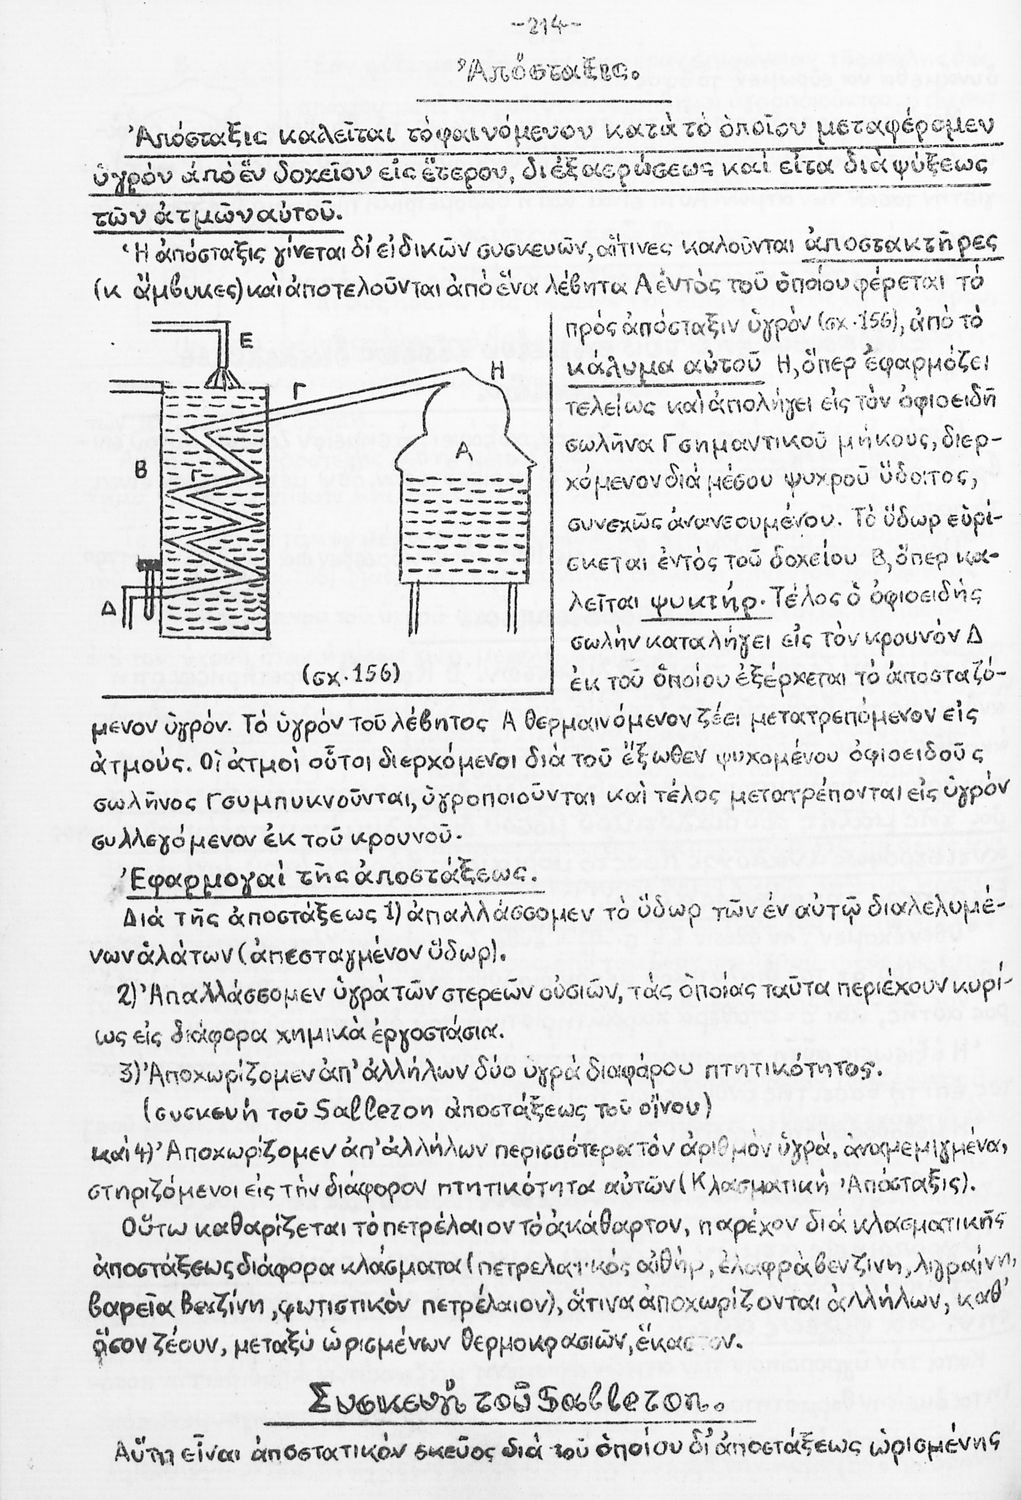 -214-
Ἀπόσταξις.
Ἀπόσταξις καλεῖται τὸ φαινόμενον κατὰ τὸ ὁποῖον μεταφέρομεν
ὑγρὸν ἀπὸ ἓν δοχεῖον εἰς ἕτερον, δι' ἐξαερώσεως καὶ εἶτα διὰ ψύξεως
τῶν ἀτμῶν αὐτοῦ.
Ἡ ἀπόσταξις γίνεται δι' εἰδικῶν συσκευῶν, αἵτινες καλοῦνται ἀποστακτῆρες
(κ ἄμβυκες) καὶ ἀποτελοῦνται ἀπὸ ἕνα λέβητα Α ἐντὸς τοῦ ὁποίου φέρεται τὸ
πρὸς ἀπόσταξιν ὑγρὸν (σχ. 156), ἀπὸ τὸ
κάλυμα αὐτοῦ Η, ὅπερ ἐφαρμόζει
τελείως καὶ ἀπολήγει εἰς τὸν ὀφιοειδῆ
σωλῆνα Γ σημαντικοῦ μήκους, διερ-
χόμενον διά μέσου ψυχροῦ ὕδατος,
συνεχῶς ἀνανεουμένου. Τὸ ὕδωρ εὑρί-
σκεται ἐντὸς τοῦ δοχείου Β, ὅπερ κα-
λεῖται ψυκτήρ. Τέλος ὁ ὀφιοειδής
σωλὴν καταλήγει εἰς τὸν κρουνὸν Δ
ἐκ τοῦ ὁποίου ἐξέρχεται τὸ ἀποσταζό-
Ε
Γ
Η
Α
Β
Γ
Δ
(σχ. 156)
μενον ὑγρόν. Τὸ ὑγρόν τοῦ λέβητος Α θερμαινόμενον ζέει μετατρεπόμενον εἰς
ἀτμούς. Οἱ ἀτμοὶ οὗτοι διερχόμενοι διὰ τοῦ ἔξωθεν ψυχομένου ὀφιοειδοῦς
σωλῆνος Γ συμπυκνοῦνται, ὑγροποιοῦνται καὶ τέλος μετατρέπονται εἰς ὑγρόν
συλλεγόμενον ἐκ τοῦ κρουνοῦ.
Ἐφαρμογαὶ τῆς ἀποστάξεως.
Διά τῆς ἀποστάξεως 1) ἀπαλλάσσομεν τὸ ὕδωρ τῶν ἐν αὐτῷ διαλελυμέ-
νων ἁλάτων (ἀπεσταγμένον ὕδωρ).
2) Ἀπαλλάσσομεν ὑγρὰ τῶν στερεῶν οὐσιῶν, τὰς ὁποίας ταῦτα περιέχουν κυρί-
ως εἰς διάφορα χημικὰ ἐργοστάσια.
3) Ἀποχωρίζομεν ἀπ' ἀλλήλων δύο ὑγρὰ διαφόρου πτητικότητος.
(συσκευὴ τοῦ Salleron ἀποστάξεως τοῦ οἴνου)
καὶ 4) Ἀποχωρίζομεν ἀπ' ἀλλήλων περισσότερα τὸν ἀριθμὸν ὑγρά, ἀναμεμιγμένα,
στηριζόμενοι εἰς τὴν διάφορον πτητικότητα αὐτῶν (Κλασματικὴ Ἀπόσταξις).
Οὕτω καθαρίζεται τὸ πετρέλαιον τὸ ἀκάθαρτον, παρέχον διὰ κλασματικῆς
ἀποστάξεως διάφορα κλάσματα (πετρελαϊκὸς αἰθήρ, ἐλαφρὰ βενζίνη, λιγραΐνη,
βαρεῖα βενζίνη, φωτιστικὸν πετρέλαιον), ἅτινα ἀποχωρίζονται ἀλλήλων, καθ'
ὅσον ζέουν, μεταξὺ ὡρισμένων θερμοκρασιῶν, ἕκαστον.
Συσκευὴ τοῦ Salleron.
Αὕτη εἶναι ἀποστατικὸν σκεῦος διὰ τοῦ ὁποίου δι' ἀποστάξεως ὡρισμένης